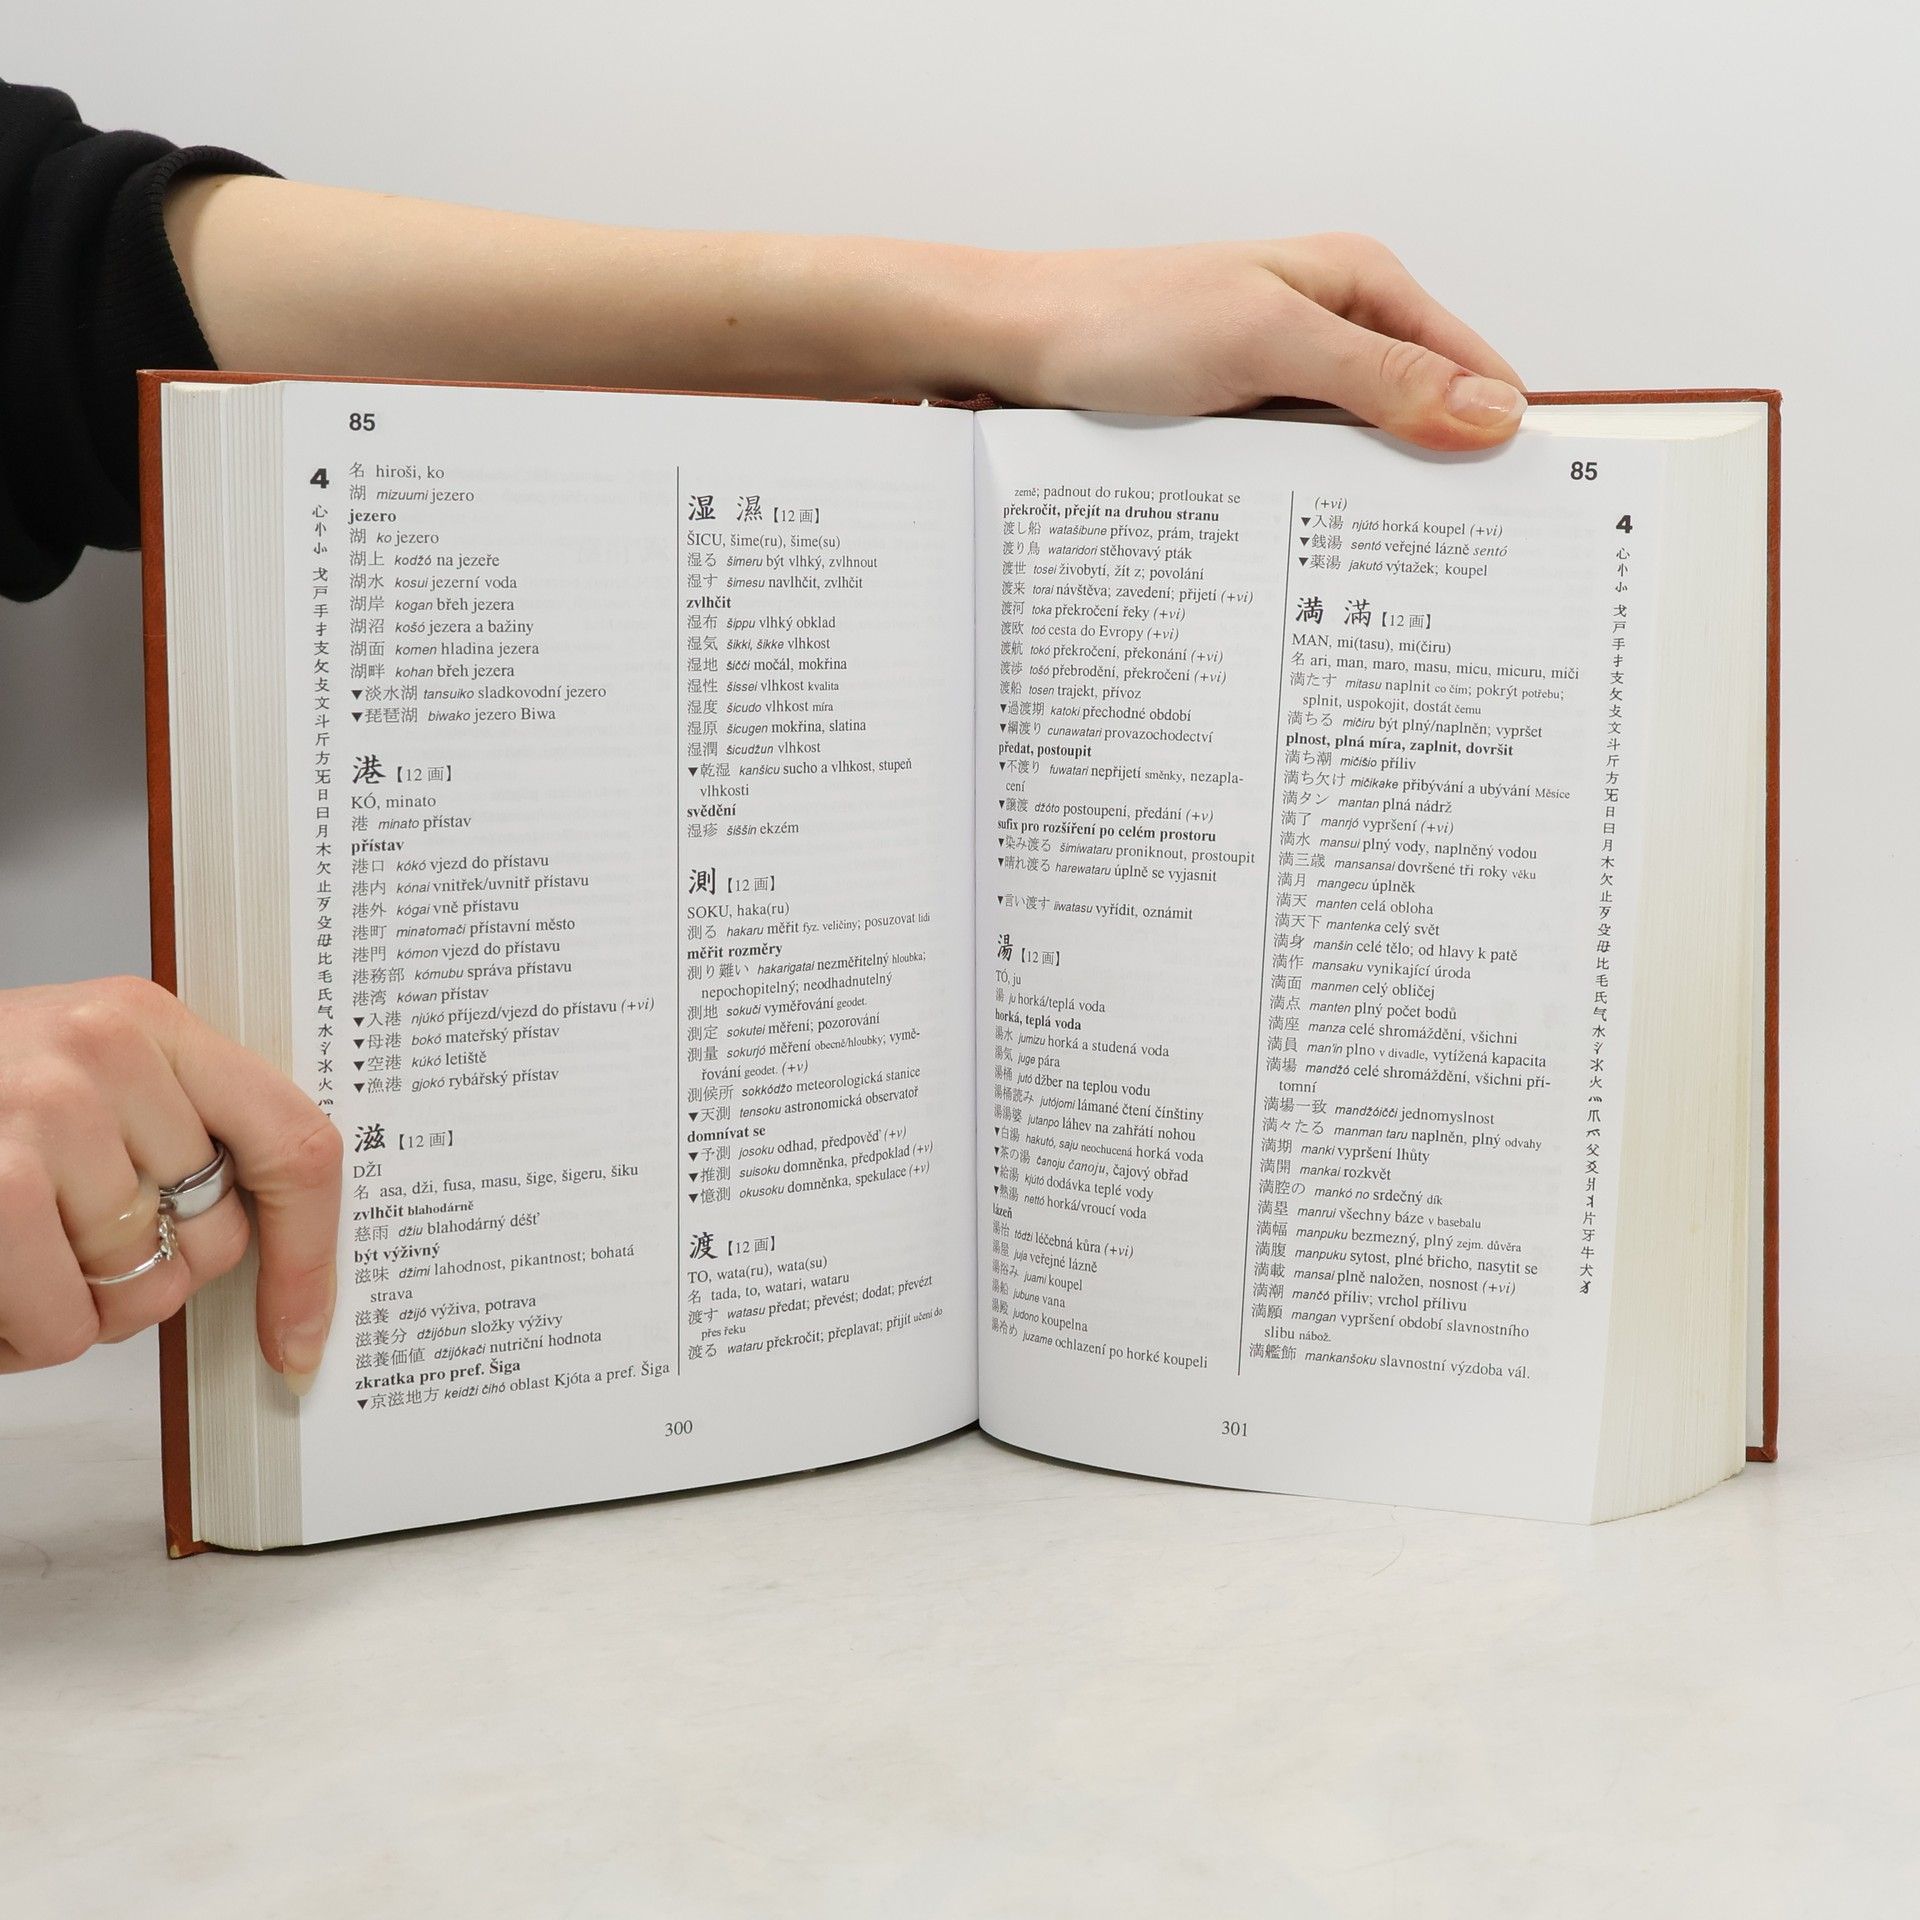 85
4
心
忄
戈
戸
手
扌
支
攵
文
斗
斤
方
日
曰
月
木
欠
止
歹
殳
毋
比
毛
氏
气
水
氵
氺
火
名 hiroši, ko
湖 mizuumi jezero
jezero
湖 ko jezero
湖上 kodžó na jezeře
湖水 kosui jezerní voda
湖岸 kogan břeh jezera
湖沼 košó jezera a bažiny
湖面 komen hladina jezera
湖畔 kohan břeh jezera
▼淡水湖 tansuiko sladkovodní jezero
▼琵琶湖 biwako jezero Biwa
港【12 画】
KÓ, minato
港 minato přístav
přístav
港口 kókó vjezd do přístavu
港内 kónai vnitřek/uvnitř přístavu
港外 kógai vně přístavu
港町 minatomači přístavní město
港門 kómon vjezd do přístavu
港務部 kómubu správa přístavu
港湾 kówan přístav
▼入港 njúkó příjezd/vjezd do přístavu (+vi)
▼母港 bokó mateřský přístav
▼空港 kúkó letiště
▼漁港 gjokó rybářský přístav
滋【12 画】
DŽI
名 asa, dži, fusa, masu, šige, šigeru, šiku
zvlhčit blahodárně
慈雨 džiu blahodárný déšť
být výživný
滋味 džimi lahodnost, pikantnost; bohatá
strava
滋養 džijó výživa, potrava
滋養分 džijóbun složky výživy
滋養価値 džijókači nutriční hodnota
zkratka pro pref. Šiga
▼京滋地方 keidži čihó oblast Kjóta a pref. Šiga
湿 濕【12 画】
ŠICU, šime(ru), šime(su)
湿る šimeru být vlhký, zvlhnout
湿す šimesu navlhčit, zvlhčit
zvlhčit
湿布 šippu vlhký obklad
湿気 šikki, šikke vlhkost
湿地 šičči močál, mokřina
湿性 šissei vlhkost kvalita
湿度 šicudo vlhkost míra
湿原 šicugen mokřina, slatina
湿潤 šicudžun vlhkost
▼乾湿 kanšicu sucho a vlhkost, stupeň
vlhkosti
svědění
湿疹 šiššin ekzém
測【12 画】
SOKU, haka(ru)
測る hakaru měřit fyz. veličiny; posuzovat lidi
měřit rozměry
測り難い hakarigatai nezměřitelný hloubka;
nepochopitelný; neodhadnutelný
測地 sokuči vyměřování geodet.
測定 sokutei měření; pozorování
測量 sokurjó měření obecně/hloubky; vymě-
řování geodet. (+v)
測候所 sokkódžo meteorologická stanice
▼天測 tensoku astronomická observatoř
domnívat se
▼予測 josoku odhad, předpověď (+v)
▼推測 suisoku domněnka, předpoklad (+v)
▼憶測 okusoku domněnka, spekulace (+v)
渡【12 画】
TO, wata(ru), wata(su)
名 tada, to, watari, wataru
渡す watasu předat; převést; dodat; převézt
přes řeku
渡る wataru překročit; přeplavat; přijít učení do
300
země; padnout do rukou; protloukat se
překročit, přejít na druhou stranu
渡し船 watašibune přívoz, prám, trajekt
渡り鳥 wataridori stěhovavý pták
渡世 tosei živobytí, žít z; povolání
渡来 torai návštěva; zavedení; přijetí (+vi)
渡河 toka překročení řeky (+vi)
渡欧 toó cesta do Evropy (+vi)
渡航 tokó překročení, překonání (+vi)
渡渉 tošó přebrodění, překročení (+vi)
渡船 tosen trajekt, přívoz
▼過渡期 katoki přechodné období
▼綱渡り cunawatari provazochodectví
předat, postoupit
▼不渡り fuwatari nepřijetí směnky, nezapla-
cení
▼譲渡 džóto postoupení, předání (+v)
sufix pro rozšíření po celém prostoru
▼染み渡る šimiwataru proniknout, prostoupit
▼晴れ渡る harewataru úplně se vyjasnit
▼言い渡す iiwatasu vyřídit, oznámit
湯【12 画】
TÓ, ju
湯 ju horká/teplá voda
horká, teplá voda
湯水 jumizu horká a studená voda
湯気 juge pára
湯桶 jutó džber na teplou vodu
湯桶読み jutójomi lámané čtení čínštiny
湯湯婆 jutanpo láhev na zahřátí nohou
▼白湯 hakutó, saju neochucená horká voda
▼茶の湯 čanoju čanoju, čajový obřad
▼給湯 kjútó dodávka teplé vody
▼熱湯 nettó horká/vroucí voda
lázeň
湯治 tódži léčebná kůra (+vi)
湯屋 juja veřejné lázně
湯浴み juami koupel
湯船 jubune vana
湯殿 judono koupelna
湯冷め juzame ochlazení po horké koupeli
(+vi)
▼入湯 njútó horká koupel (+vi)
▼銭湯 sentó veřejné lázně sentó
▼薬湯 jakutó výtažek; koupel
満 滿【12 画】
MAN, mi(tasu), mi(čiru)
名 ari, man, maro, masu, micu, micuru, miči
満たす mitasu naplnit co čím; pokrýt potřebu;
splnit, uspokojit, dostát čemu
満ちる mičiru být plný/naplněn; vypršet
plnost, plná míra, zaplnit, dovršit
満ち潮 mičišio příliv
満ち欠け mičikake přibývání a ubývání Měsíce
満タン mantan plná nádrž
満了 manrjó vypršení (+vi)
満水 mansui plný vody, naplněný vodou
満三歳 mansansai dovršené tři roky věku
満月 mangecu úplněk
満天 manten celá obloha
満天下 mantenka celý svět
満身 manšin celé tělo; od hlavy k patě
満作 mansaku vynikající úroda
満面 manmen celý obličej
満点 manten plný počet bodů
満座 manza celé shromáždění, všichni
満員 man'in plno v divadle, vytížená kapacita
満場 mandžó celé shromáždění, všichni pří-
tomní
満場一致 mandžóičči jednomyslnost
満々たる manman taru naplněn, plný odvahy
満期 manki vypršení lhůty
満開 mankai rozkvět
満腔の mankó no srdečný dík
満塁 manrui všechny báze v basebalu
満幅 manpuku bezmezný, plný zejm. důvěra
満腹 manpuku sytost, plné břicho, nasytit se
満載 mansai plně naložen, nosnost (+vi)
満潮 mančó příliv; vrchol přílivu
満願 mangan vypršení období slavnostního
slibu nábož.
満艦飾 mankanšoku slavnostní výzdoba vál.
85
4
心
忄
戈
戸
手
扌
支
攵
文
斗
斤
方
日
曰
月
木
欠
止
歹
殳
毋
比
毛
氏
气
水
氵
氺
火
灬
爪
父
爻
爿
片
牙
牛
犬
301